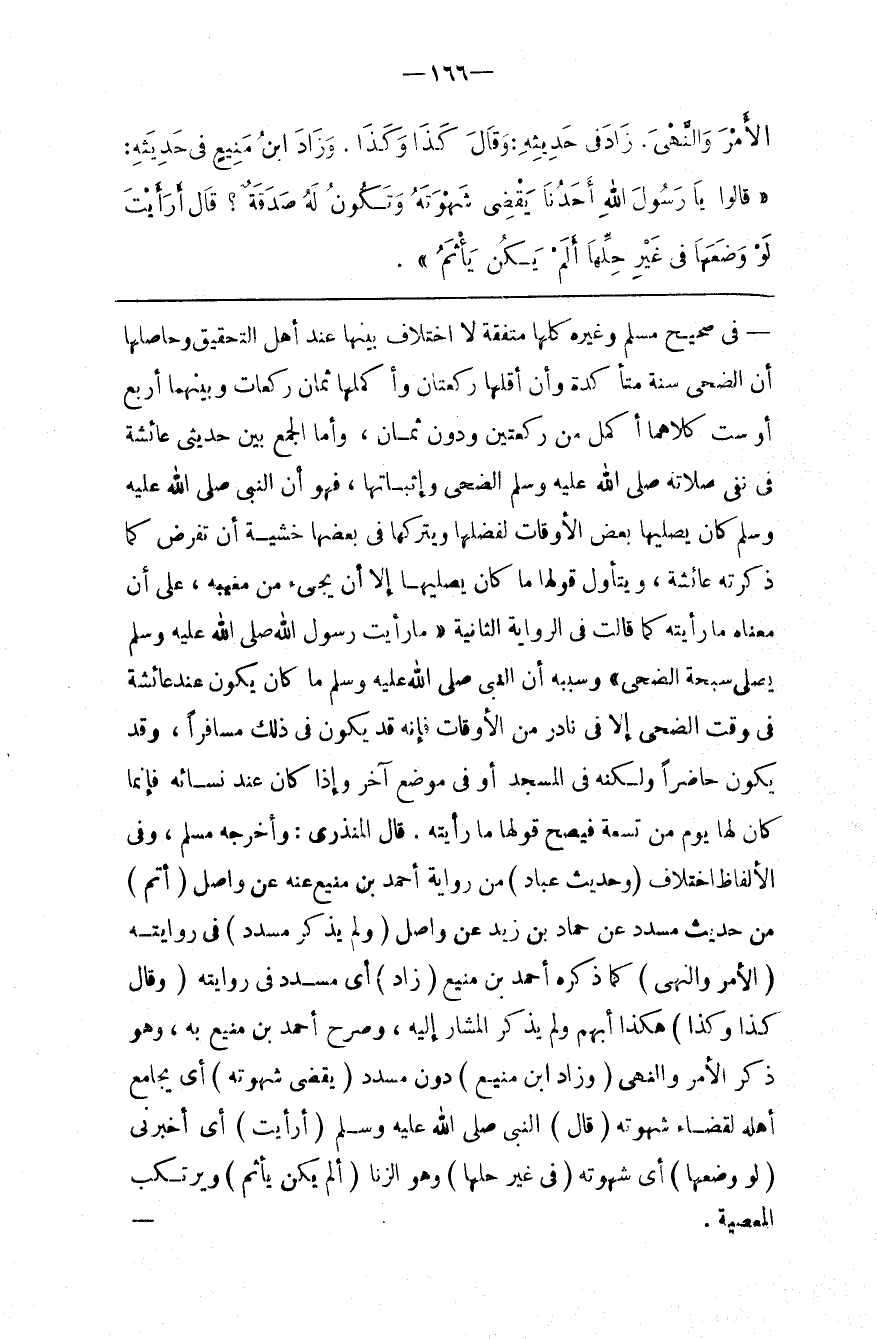 —١٦٦—
الأَمْرَ وَالنَّهْىَ. زَادَ فى حَدِيثِهِ: وَقَالَ كَذَا وَكَذَا. وَزَادَ ابنُ مَنِيعٍ فى حَدِيثِهِ:
« قالوا يَا رَسُولَ اللهِ أَحَدُنَا يَقْضِى شَهْوَتَهُ وَتَـكُونُ لَهُ صَدَقَةٌ ؟ قَال أَرَأَيْتَ
لَوْ وَضَعَهَا فى غَيْرِ حِلِّهَا أَلَمْ يَـكُن يَأْثَمُ » .
— فى صحيـح مسلم وغيره كلها متفقة لا اختلاف بينها عند أهل التحقيق وحاصلها
أن الضحى سنة متأكدة وأن أقلها ركعتان وأكملها ثمان ركعات وبينهما أربع
أو ست كلاهما أكمل من ركعتين ودون ثمـان ، وأما الجمع بين حديثى عائشة
فى نفى صلاته صلى الله عليه وسلم الضحى وإثبـاتها ، فهو أن النبى صلى الله عليه
وسلم كان يصليها بعض الأوقات لفضلها ويتركها فى بعضها خشيـة أن تفرض كما
ذكرته عائشة ، ويتأول قولها ما كان يصليهـا إلا أن يجىء من مغيبه ، على أن
معناه ما رأيته كما قالت فى الرواية الثانية « ما رأيت رسول الله صلى الله عليه وسلم
يصلى سبحة الضحى» وسببه أن النبى صلى الله عليه وسلم ما كان يكون عند عائشة
فى وقت الضحى إلا فى نادر من الأوقات فإنه قد يكون فى ذلك مسافراً ، وقد
يكون حاضراً ولـكنه فى المسجد أو فى موضع آخر وإذا كان عند نسـائه فإنما
كان لها يوم من تسعة فيصح قولها ما رأيته . قال المنذرى : وأخرجه مسلم ، وفى
الألفاظ اختلاف (وحديث عباد) من رواية أحمد بن منيع عنه عن واصل ( أتم )
من حديث مسدد عن حماد بن زيد عن واصل ( ولم يذكر مسدد ) فى روايتـه
( الأمر والنهى ) كما ذكره أحمد بن منيع ( زاد ) أى مسـدد فى روايته ( وقال
كذا وكذا ) هكذا أبهم ولم يذكر المشار إليه ، وصرح أحمد بن منيع به ، وهو
ذكر الأمر والنهى ( وزاد ابن منيـع ) دون مسدد ( يقضى شهوته ) أى يجامع
أهله لقضـاء شهوته ( قال ) النبى صلى الله عليه وسـلم ( أرأيت ) أى أخبرنى
( لو وضعها ) أى شهوته ( فى غير حلها ) وهو الزنا ( ألم يكن يأثم ) ويرتـكب
المعصية . —